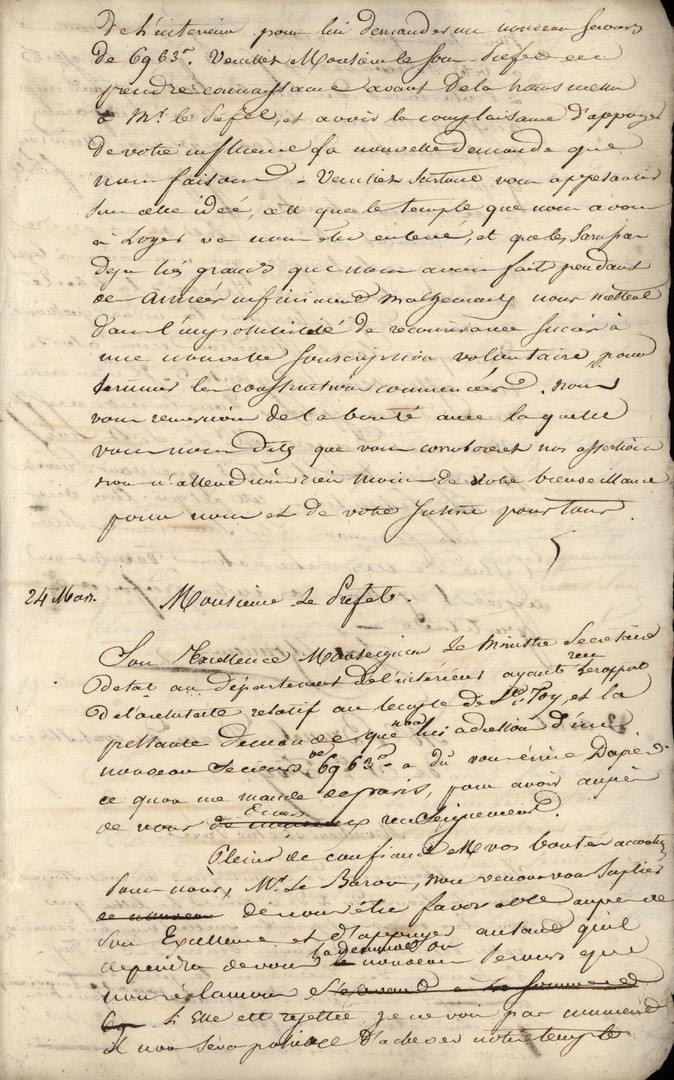 de l'interieur pour lui demander un nouveau secours
de 6963f. Veuillez Monsieur le Sous-Prefet en
prendre connaissance avant de la transmettre
à Mr. le Prefet, et avoir la complaisance d'appuyer
de votre influence la nouvelle demande que
nous faisons. Veuillez surtout vous appesantir
sur cette idée, c'est que le temple que nous avons
à Loyer va nous être enlevé, et que les sacrifices
deja très grands que nous avons fait pendant
des années infiniment malheureuses nous mettent
dans l'impossibilité de recourir avec succès à
une nouvelle souscription volontaire, pour
terminer les constructions commencées. Nous
vous remercions de la bonté avec laquelle
vous nous dites que vous corroborerez nos assertions
nous n'attendions rien moins de votre bienveillance
pour nous et de votre justice pour tous.
24 Mars. Monsieur le Prefet.
Son Excellence Monseigneur le Ministre Secretaire
d'etat au département de l'intérieur ayant reçu le rapport
de l'architecte relatif au temple de Ste. Foy, et la
pressante demande que nous lui adressions d'un
nouveau secours de 6963f. a dû vous écrire d'après
ce qu'on me mande de paris, pour avoir auprès
de vous renseignements.
Pleins de confiance M vos bontés accoutumées
pour nous, Mr. Le Baron, nous venons vous supplier
de nous être favorable auprès de
Son Excellence et d'appuyer autant qu'il
dépendra de vous la demande du nouveau secours que
nous réclamons s'élevant à la somme de
69 Si elle est rejettée je ne vois pas comment
il nous sera possible d'achever notre temple